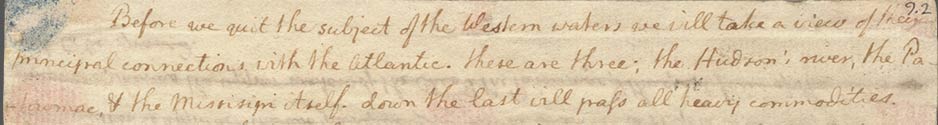 9.2
Before we quit the subject of the Western waters we will take a view of their
principal connections with the Atlantic. these are three; the Hudson's river, the Pa-
-towmac, & the Missisipi itself. down the last will pass all heavy commodities.